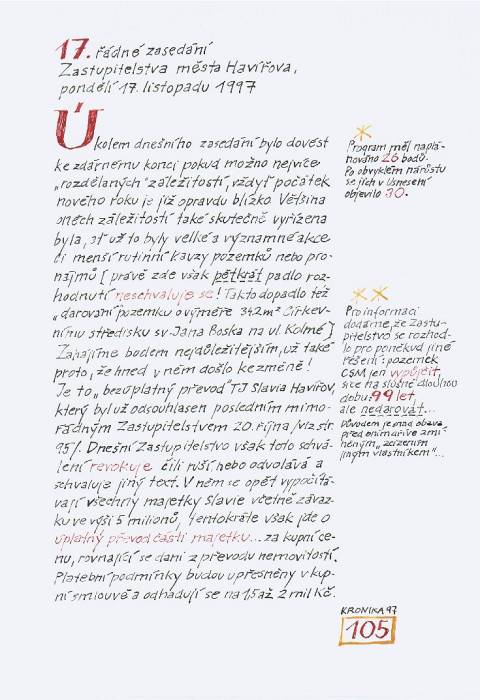 17. řádné zasedání
Zastupitelstva města Havířova,
pondělí 17. listopadu 1997
Úkolem dnešního zasedání bylo dovést
ke zdárnému konci pokud možno nejvíce
„rozdělaných" záležitostí, vždyť počátek
nového roku je již opravdu blízko. Většina
oněch záležitostí také skutečně vyřízena
byla, ať už to byly velké a významné akce
či menší rutinní kauzy pozemků nebo pro-
nájmů [ právě zde však pětkrát padlo roz-
hodnutí neschvaluje se! Takto dopadlo též
„darování pozemku o výměře 342 m² Církev-
nímu středisku sv. Jana Boska na ul. Kolmé ]
Zahajme bodem nejdůležitějším, už také
proto, že hned v něm došlo ke změně!
Je to „bezúplatný převod" TJ Slavia Havířov,
který byl už odsouhlasen posledním mimo-
řádným Zastupitelstvem 20. října /viz str.
95/. Dnešní Zastupitelstvo však toto schvá-
lení revokuje čili ruší, nebo odvolává a
schvaluje jiný text. V něm se opět vypočítá-
vají všechny majetky Slavie včetně závaz-
ků ve výši 5 milionů, tentokráte však jde o
úplatný převod části majetku... za kupní ce-
nu, rovnající se dani z převodu nemovitostí.
Platební podmínky budou upřesněny v kup-
ní smlouvě a odhadují se na 1,5 až 2 mil Kč.
*
Program měl naplá-
nováno 26 bodů.
Po obvyklém nárůstu
se jich v Usnesení
objevilo 30.
**
Pro informaci
dodejme, že Zastu-
pitelstvo se rozhod-
lo pro poněkud jiné
řešení: pozemek
CSM jen vypůjčit,
sice na slušně dlouhou
dobu: 99 let,
ale nedarovat...
Důvodem je snad obava
před
jiným vlastníkem"...
KRONIKA 97
105